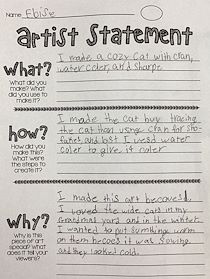 Name Ebis
artist Statement
What?
What did you
make? What did
you use to
make it?
I made a cozy cat with cfan,
water color, and sharpe
how?
How did you
make this?
What were
the steps to
create it?
I made the cat buy traceing
the cat than using cfan for sha
and last I uesd water
coler to give it coler
Why?
Why is this
piece of art
special? What
does it tell your
viewers?
I made this art becouse
I loved the wide cats in my
Grandmas yard and in the winter
I wanted to put sumthing worm
on them becoes it was snowing
and they looked cold.